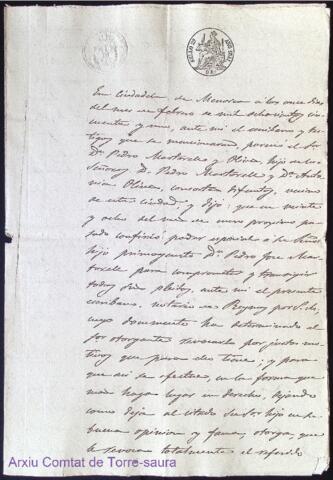 SELLO 4º AÑO 1851
En Ciudadela de Menorca á los once dias
del mes de febrero de mil ochocientos cin-
cuenta y uno, ante mi el escribano y tes-
tigos que se mencionarán, pareció el Sor
Dn. Pedro Martorell y Olives, hijo de los
Señores D. Pedro Martorell y Da. Anto-
nia Olives, consortes difuntos, vecino
de esta ciudad, y dijo; que en veinte
y ocho del mes de enero proximo pa-
sado confirió poder especial á su Señor
hijo primogenito Dn. Pedro José Mar-
torell para comprometer y transigir
todos sus pleitos, ante mi el presente
escribano, notario de Reynos por S.M.,
cuyo documento ha determinado el
Sor otorgante revocarlo por justos mo-
tivos que para ello tiene; y para
que asi se efectue, en la forma que
mas haya lugar en derecho, dejando
como deja al citado su Sor hijo en su
buena opinion y fama, otorga, que
le revoca totalmente el referido
Arxiu Comtat de Torre-saura